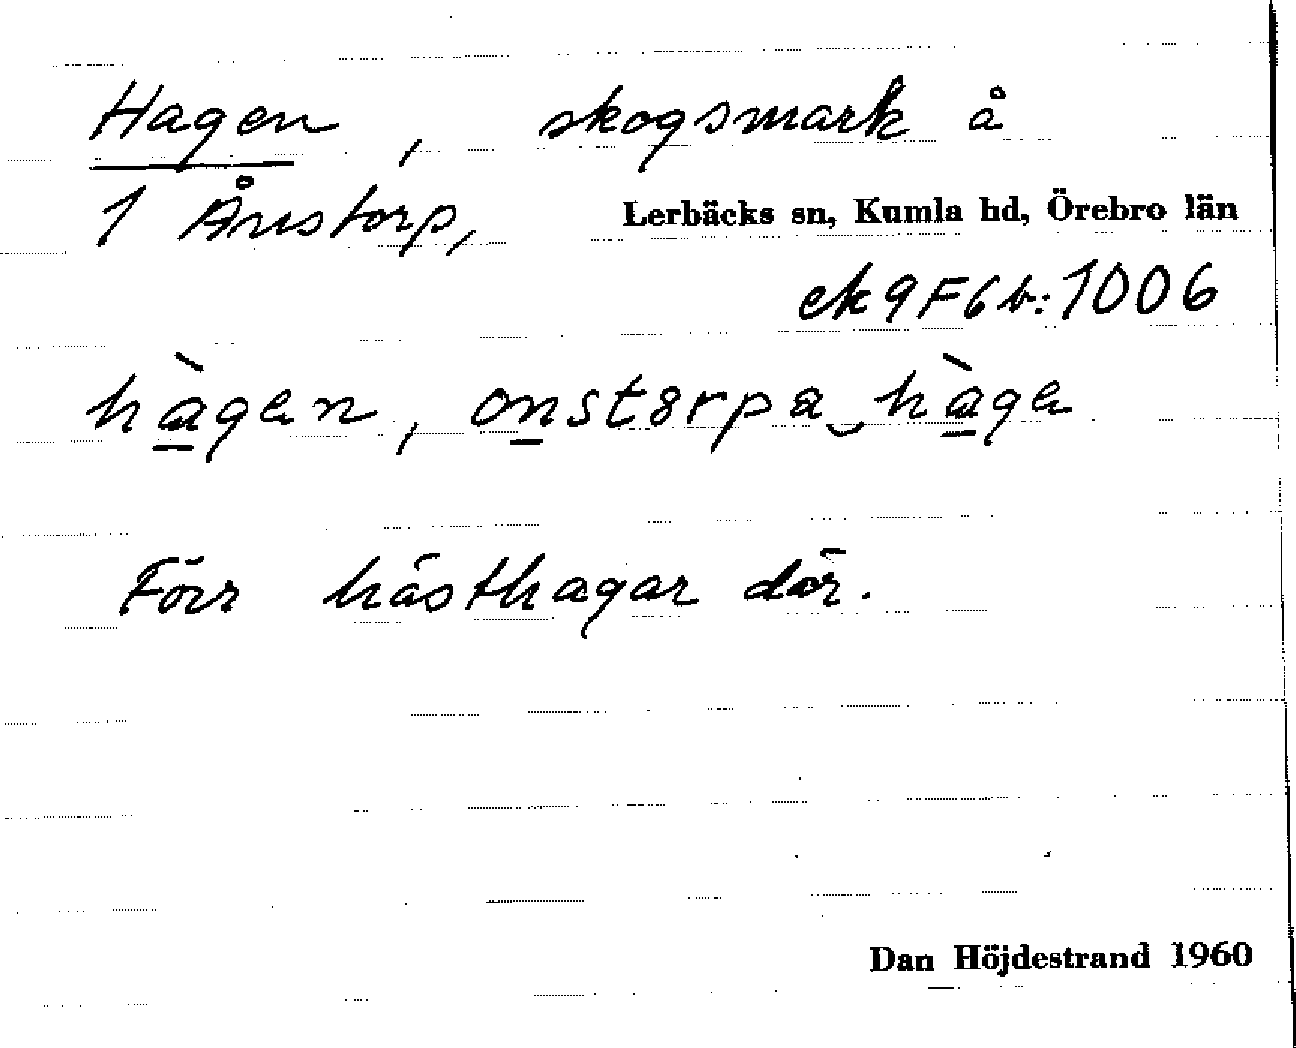 Hagen, skogsmark å
1 Ånstorp, Lerbäcks sn, Kumla hd, Örebro län
ek 9F6b:1006
hàgen, onst8rpa‿hàga
Förr hästhagar där.
Dan Höjdestrand 1960